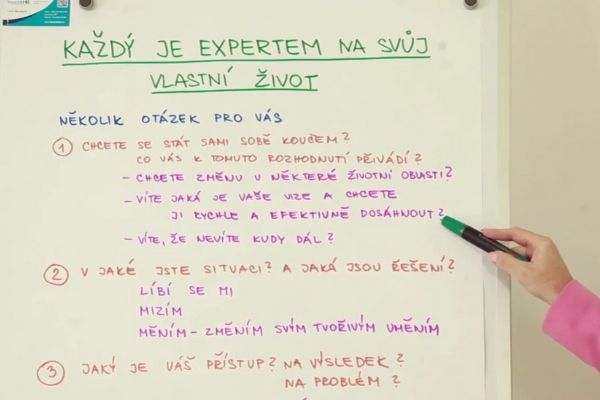 KAŽDÝ JE EXPERTEM NA SVŮJ
VLASTNÍ ŽIVOT
NĚKOLIK OTÁZEK PRO VÁS
1 CHCETE SE STÁT SAMI SOBĚ KOUČEM?
CO VÁS K TOMUTO ROZHODNUTÍ PŘIVÁDÍ?
- CHCETE ZMĚNU V NĚKTERÉ ŽIVOTNÍ OBLASTI?
- VÍTE JAKÁ JE VAŠE VIZE A CHCETE
JI RYCHLE A EFEKTIVNĚ DOSÁHNOUT?
- VÍTE, ŽE NEVÍTE KUDY DÁL?
2 V JAKÉ JSTE SITUACI? A JAKÁ JSOU ŘEŠENÍ?
LÍBÍ SE MI
MIZÍM
MĚNÍM - ZMĚNÍM SVÝM TVOŘIVÝM UMĚNÍM
3 JAKÝ JE VÁŠ PŘÍSTUP? NA VÝSLEDEK?
NA PROBLÉM?